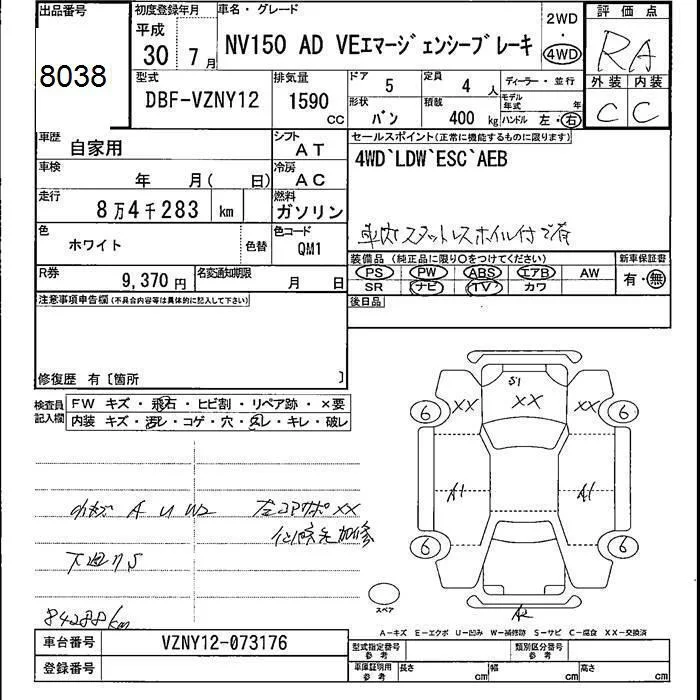 出品番号
8038
初度登録年月
平成
30 7月
車名・グレード
NV150 AD VEエマージェンシーブレーキ
2WD
・
4WD
評価点
RA
外装 内装
C C
型式
DBF-VZNY12
排気量
1590 CC
ドア 5
定員 4 人
ディーラー・並行
形状 バン
積載 400 kg
モデル年式 年
ハンドル 左・右
車歴 自家用
シフト AT
車検 年 月( 日)
冷房 AC
走行 8万4千283 km
燃料 ガソリン
色 ホワイト
色替
色コード QM1
R券 9,370 円
名変通知期限 月 日
セールスポイント(正常に機能するものに限ります)
4WD`LDW`ESC`AEB
スタットレスホイル付
装備品 (純正品に限り○をつけてください)
PS PW ABS エアB AW
SR ナビ TV カワ
新車保証書
有・無
後日品
注意事項申告欄(不具合内容等は具体的に記入して下さい)
修復歴 有〔箇所 〕
検査員記入欄
FW キズ・飛石・ヒビ割・リペア跡・×要
内装 キズ・汚レ・コゲ・穴・スレ・キレ・破レ
A U W2
左コアサポ XX
下廻りS
84288km
S1
XX XX XX
6 6
A1 A1
6 6
A2
スペア
A-キズ E-エクボ U-凹み W-補修跡 S-サビ C-腐食 XX-交換済
車台番号 VZNY12-073176
登録番号
型式指定番号 参考
類別区分番号 参考
車庫証明用 参考
長さ cm 幅 cm 高さ cm